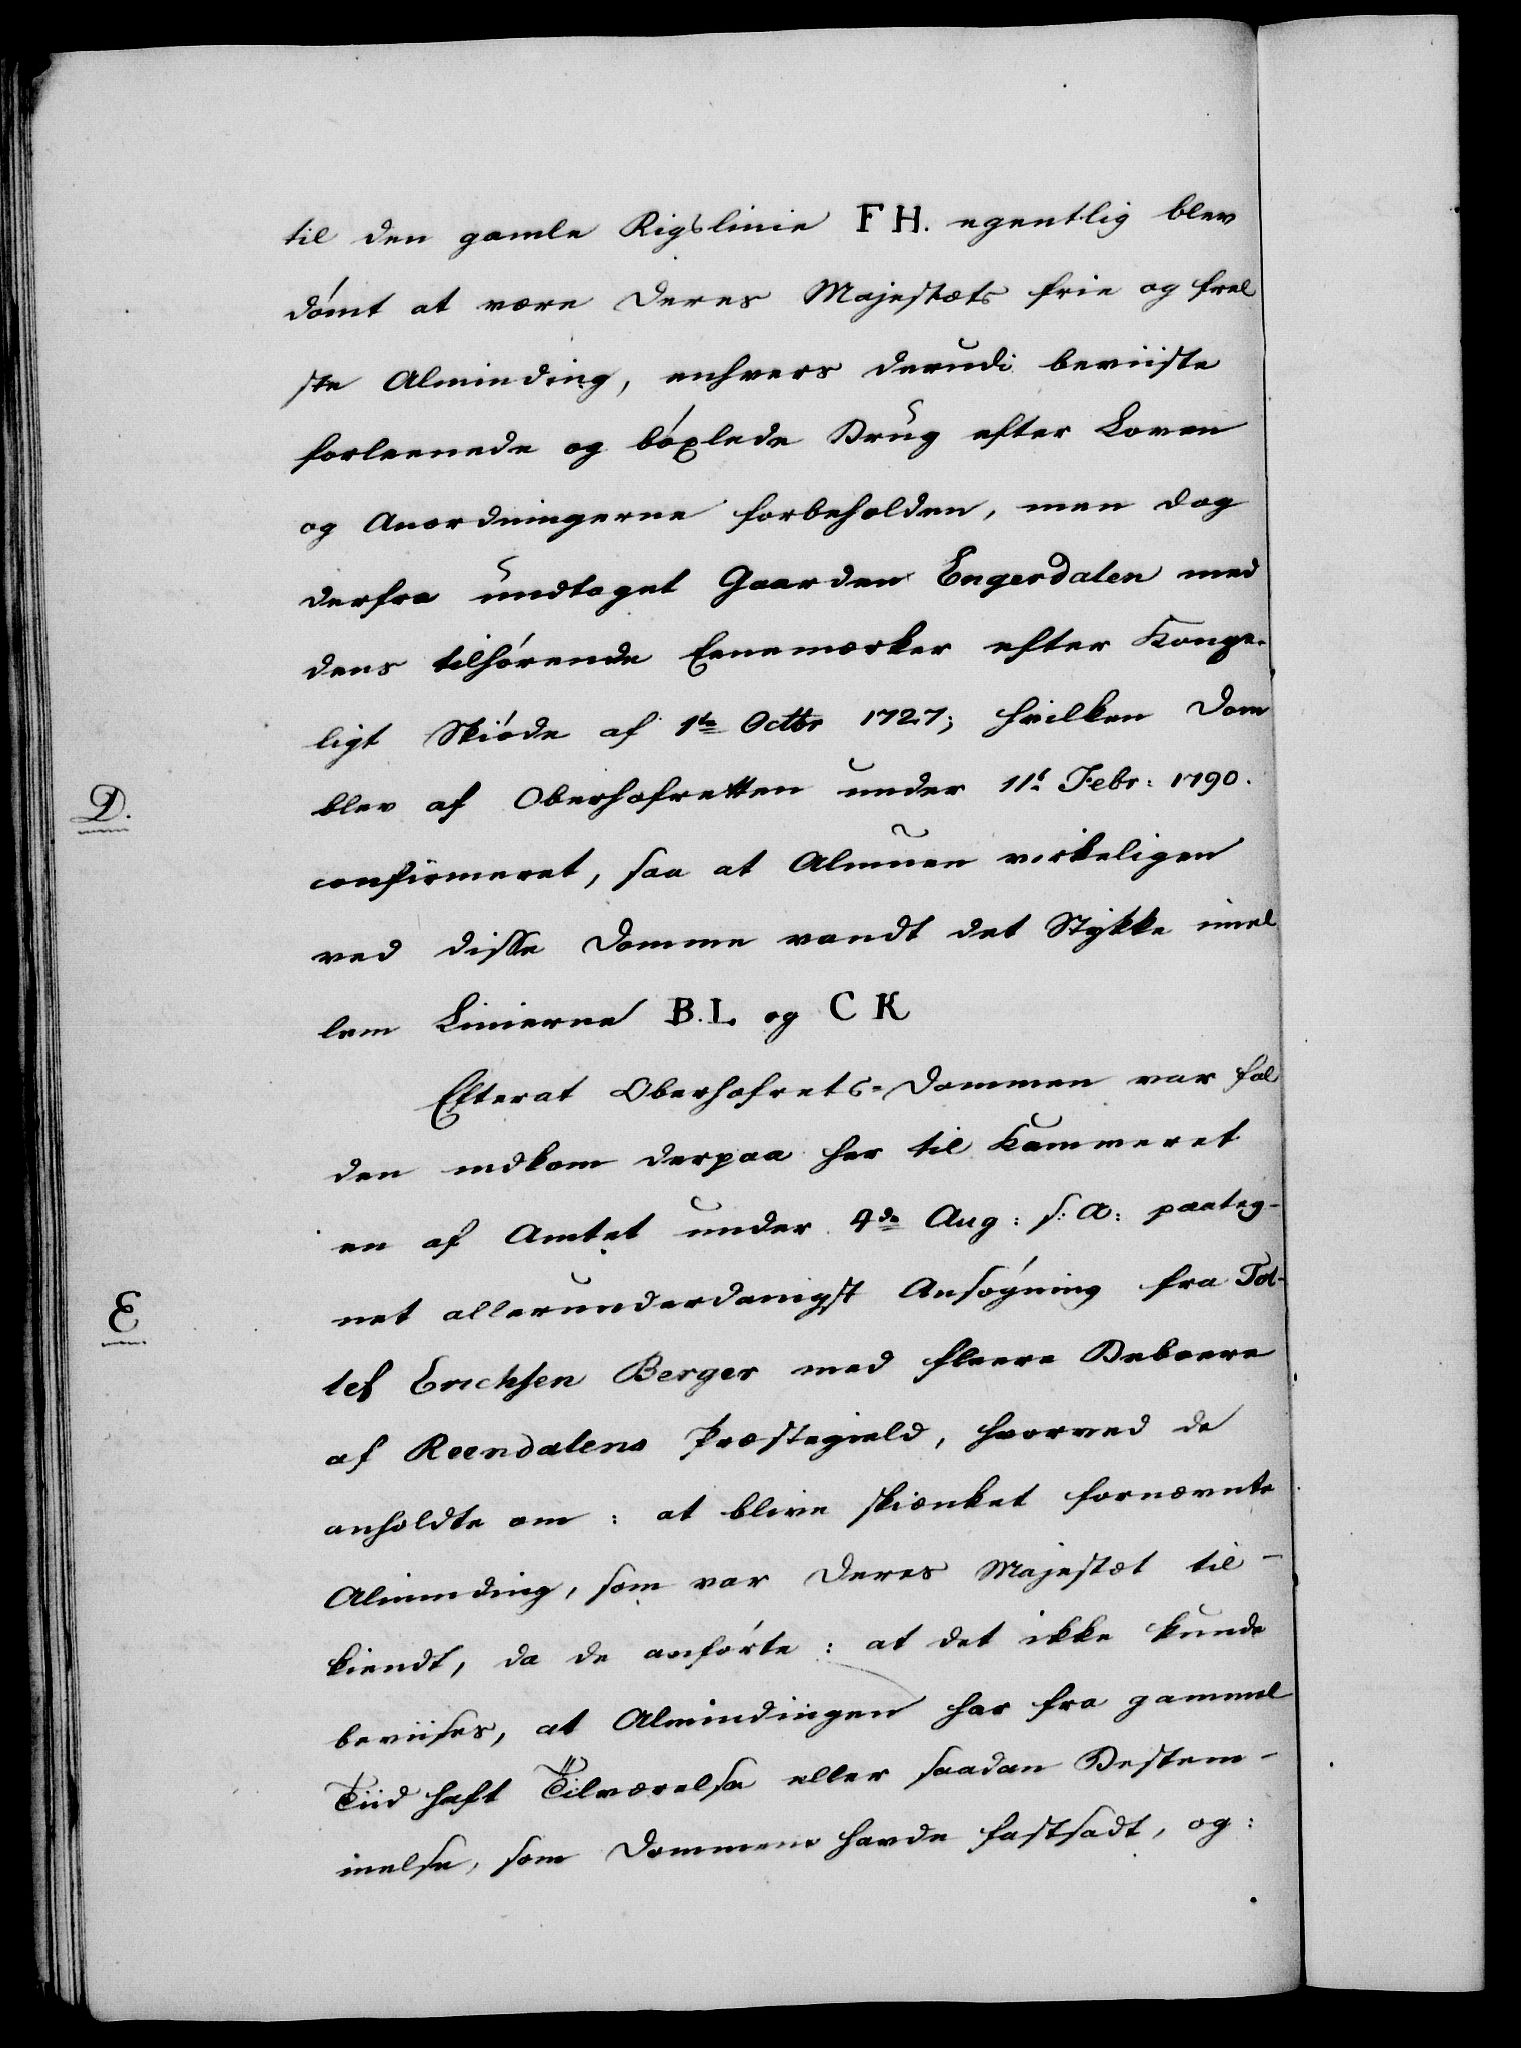 til den gamle Rigslinie F H. egentlig blev
dømt at være Deres Majestæts frie og frel
ste Alminding, enhvers derudi beviiste
forleenede og bøxlede Brug efter Loven
og Anordningerne forbeholden, men dog
derfra undtaget Gaarden Engerdalen med
dens tilhørende Eenemærker efter Konge-
ligt Skiøde af 1te Octbr 1727; hvilken Dom
D.
blev af Oberhofretten under 11t Febr: 1790.
confirmeret, saa at Almuen virkeligen
ved disse Domme vandt det Stykke imel
lem Linierne B. I. og C K
Efterat Oberhofrets-Dommen var fal
den indkom derpaa her til Kammeret
en af Amtet under 4de Aug: s: A: paateg-
E
net allerunderdanigst Ansøgning fra Tol-
lef Erichsen Berger med fleere Beboere
af Reendalens Præstegield, hvorved de
anholdte om: at blive skienket fornævnte
Alminding, som var Deres Majestæt til-
kiendt, da de anførte: at det ikke kunde
beviises, at Almindingen har fra gammel
Tiid haft Tilværelse eller saadan Bestem-
melse, som Dommene havde fastsadt, og: